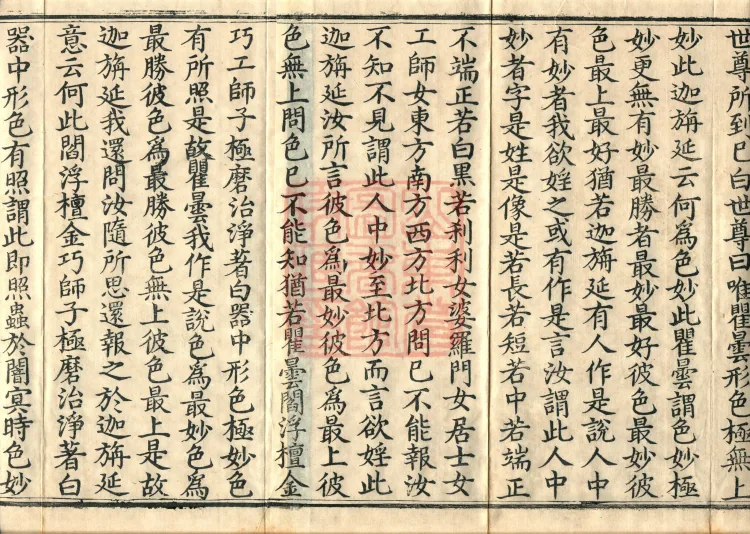 世尊所到已白世尊曰唯瞿曇形色極無上
妙此迦旃延云何爲色妙此瞿曇謂色妙極
妙更無有妙最勝者最妙最好彼色最妙彼
色最上最好猶若迦旃延有人作是說人中
有妙者我欲婬之或有作是言汝謂此人中
妙者字是姓是像是若長若短若中若端正
不端正若白黑若刹利女婆羅門女居士女
工師女東方南方西方北方問已不能報汝
不知不見謂此人中妙至北方而言欲婬此
迦旃延汝所言彼色爲最妙彼色爲最上彼
色無上問色已不能知猶若瞿曇閻浮檀金
巧工師子極磨治淨著白器中形色極妙色
有所照是故瞿曇我作是說色爲最妙色爲
最勝彼色爲最勝彼色無上彼色最上是故
迦旃延我還問汝隨所思還報之於迦旃延
意云何此閻浮檀金巧師子極磨治淨著白
器中形色有照謂此即照蟲於闇冥時色妙